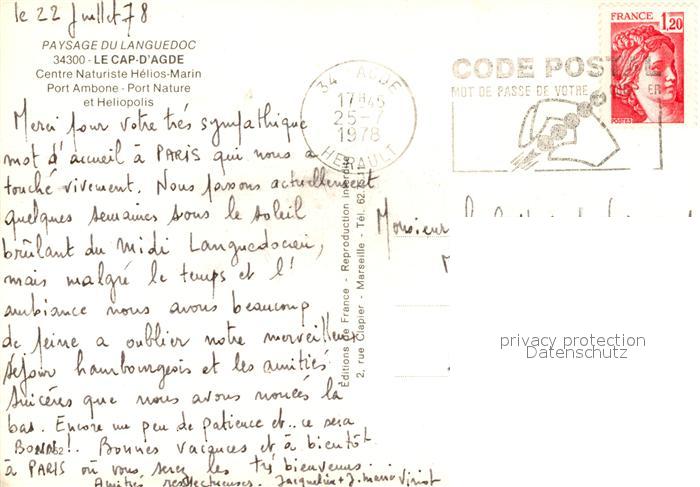 le 22 Juillet 78
PAYSAGE DU LANGUEDOC
34300 - LE CAP-D'AGDE
Centre Naturiste Hélios-Marin
Port Ambone - Port Nature
et Heliopolis
Merci pour votre très sympathique
mot d'accueil à PARIS qui nous a
touché vivement. Nous passons actuellement
quelques semaines sous le soleil
brûlant du Midi Languedocien,
mais malgré le temps et l'
ambiance nous avons beaucoup
de peine a oublier notre merveilleux
séjour hambourgeois et les amitiés
sincères que nous avons nouées là
bas. Encore un peu de patience et.. ce sera
Bonnes vacances et à bientôt
à PARIS où vous serez les très bienvenus.
Amitiés respectueuses. Jacqueline + J. Marie
34 AGDE
17H45
25-7
1978
HERAULT
CODE POSTAL
MOT DE PASSE DE VOTRE
FRANCE
1,20
POSTES
Éditions de France - Reproduction interdite
2, rue Clapier - Marseille - Tél. 62.
Monsieur
privacy protection
Datenschutz